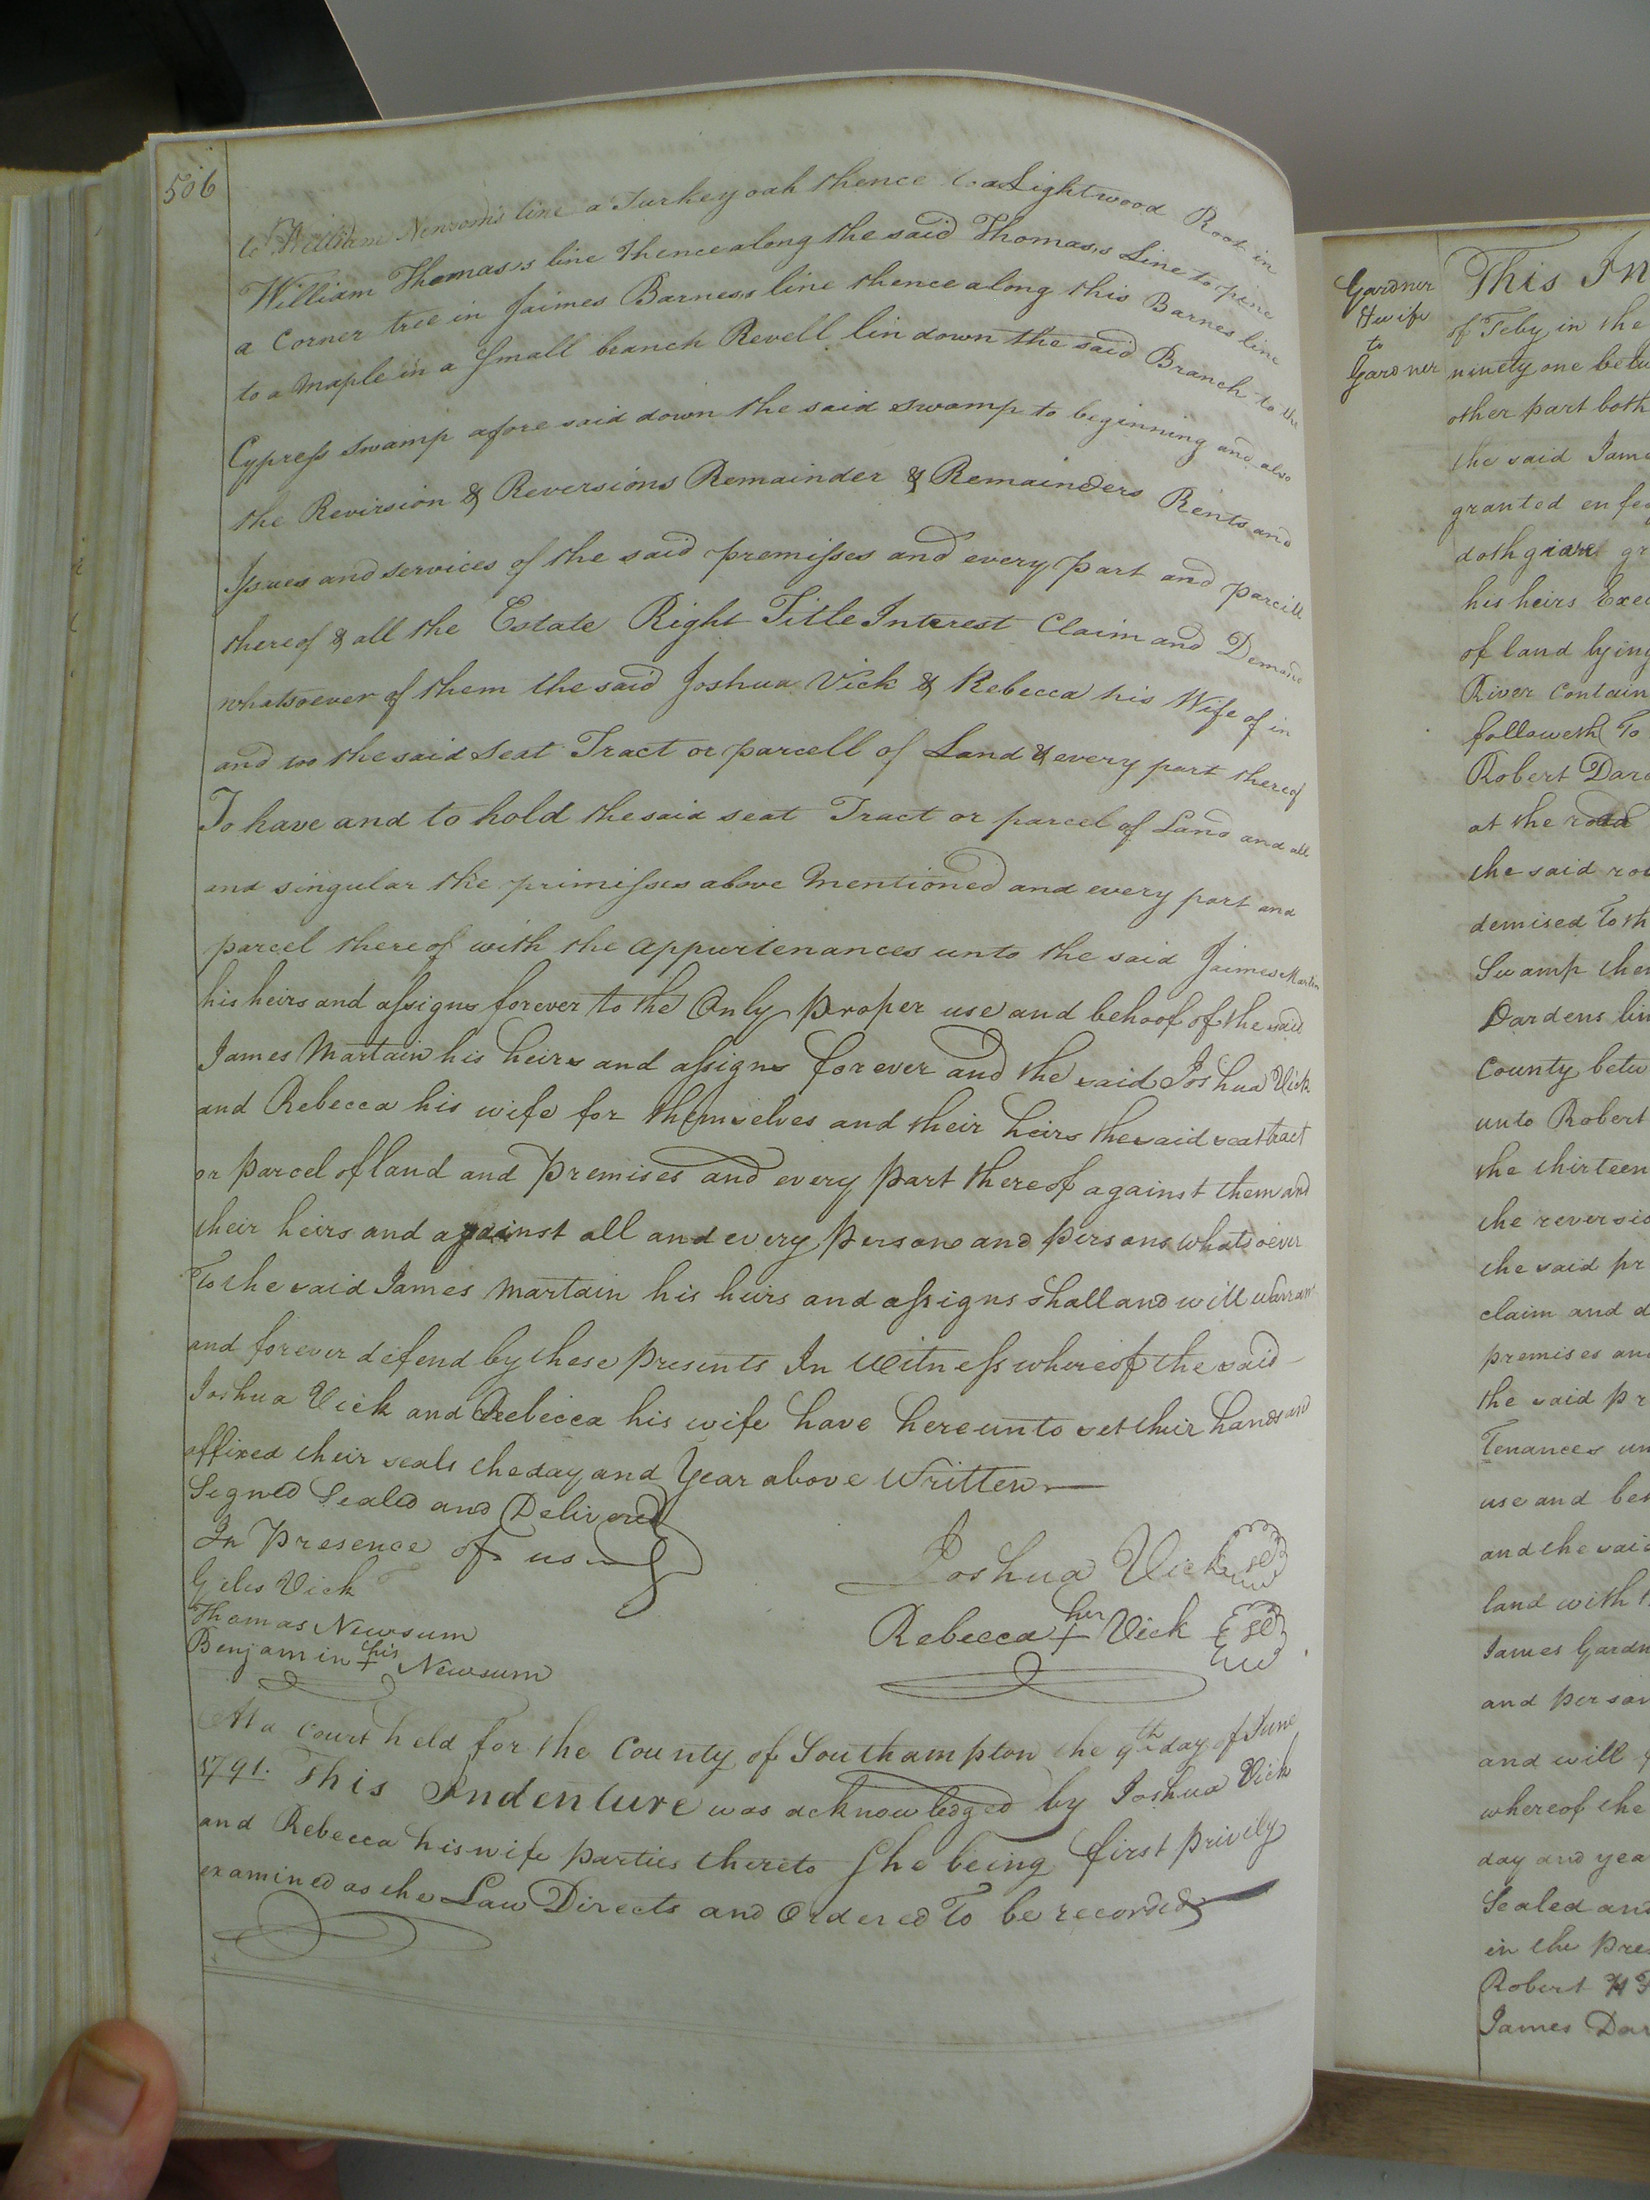 506
to William Newsom's line a Turkey oak thence to a Lightwood Root in
William Thomas,s line thence along the said Thomas,s Line to a pine
a Corner tree in Jaimes Barness line thence along this Barnes line
to a maple in a Small branch Revell lin down the said Branch to the
Cypress Swamp afore said down the said swamp to beginning and also
the Revirsion & Reversions Remainder & Remainders Rents and
Issues and services of the said premisses and every part and parcill
thereof & all the Estate Right Title Interest Claim and Demand
whatsoever of them the said Joshua Vick & Rebecca his Wife of in
and too the said Seat Tract or parcell of Land & every part thereof
To have and to hold the said seat Tract or parcel of Land and all
and singular the primisses above mentioned and every part and
parcel thereof with the appurtenances unto the said Jaimes Martin
his heirs and assigns forever to the Only proper use and behoof of the said
James Martain his heirs and assigns forever and the said Joshua Vick
and Rebecca his wife for themselves and their heirs the said seat tract
or parcel of land and premises and every part thereof against them and
their heirs and against all and every persone and persons whatsoever
To the said James martain his heirs and assigns shall and will warrant
and forever defend by these presents In Witness whereof the said
Joshua Vick and Rebecca his wife have hereunto set their hands and
affixed their seals the day and Year above Written
Segned Sealed and Delivered
In Presence of us
Giles Vick
Thomas Newsum
Benjamin his + Newsum
Joshua Vick se
Rebecca her + Vick se
At a Court held for the County of Southampton the 9th day of June
1791. This Indenture was acknowledged by Joshua Vick
and Rebecca his wife parties thereto She being first privily
examined as the Law Directs and Ordered To be recorded
Gardner
& wife
to
Gardner
This In
of Feby in the
ninety one betw
other part both
the said Jame
granted enfeo
doth give gr
his heirs Exec
of land lying
River Contain
followeth To
Robert Dard
at the road
the said ro
demised To th
Swamp then
Dardens lin
County betw
unto Robert
the thirteen
the reversio
the said pr
claim and d
premises and
the said pr
Tenances un
use and beh
and the said
land with t
James Gardn
and person
and will
whereof the
day and yea
Sealed and
in the pres
Robert
James Dar